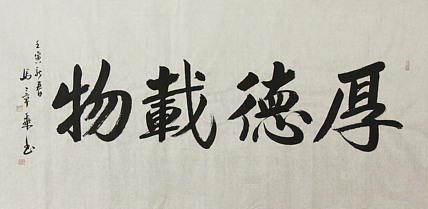 厚德載物
壬寅新春